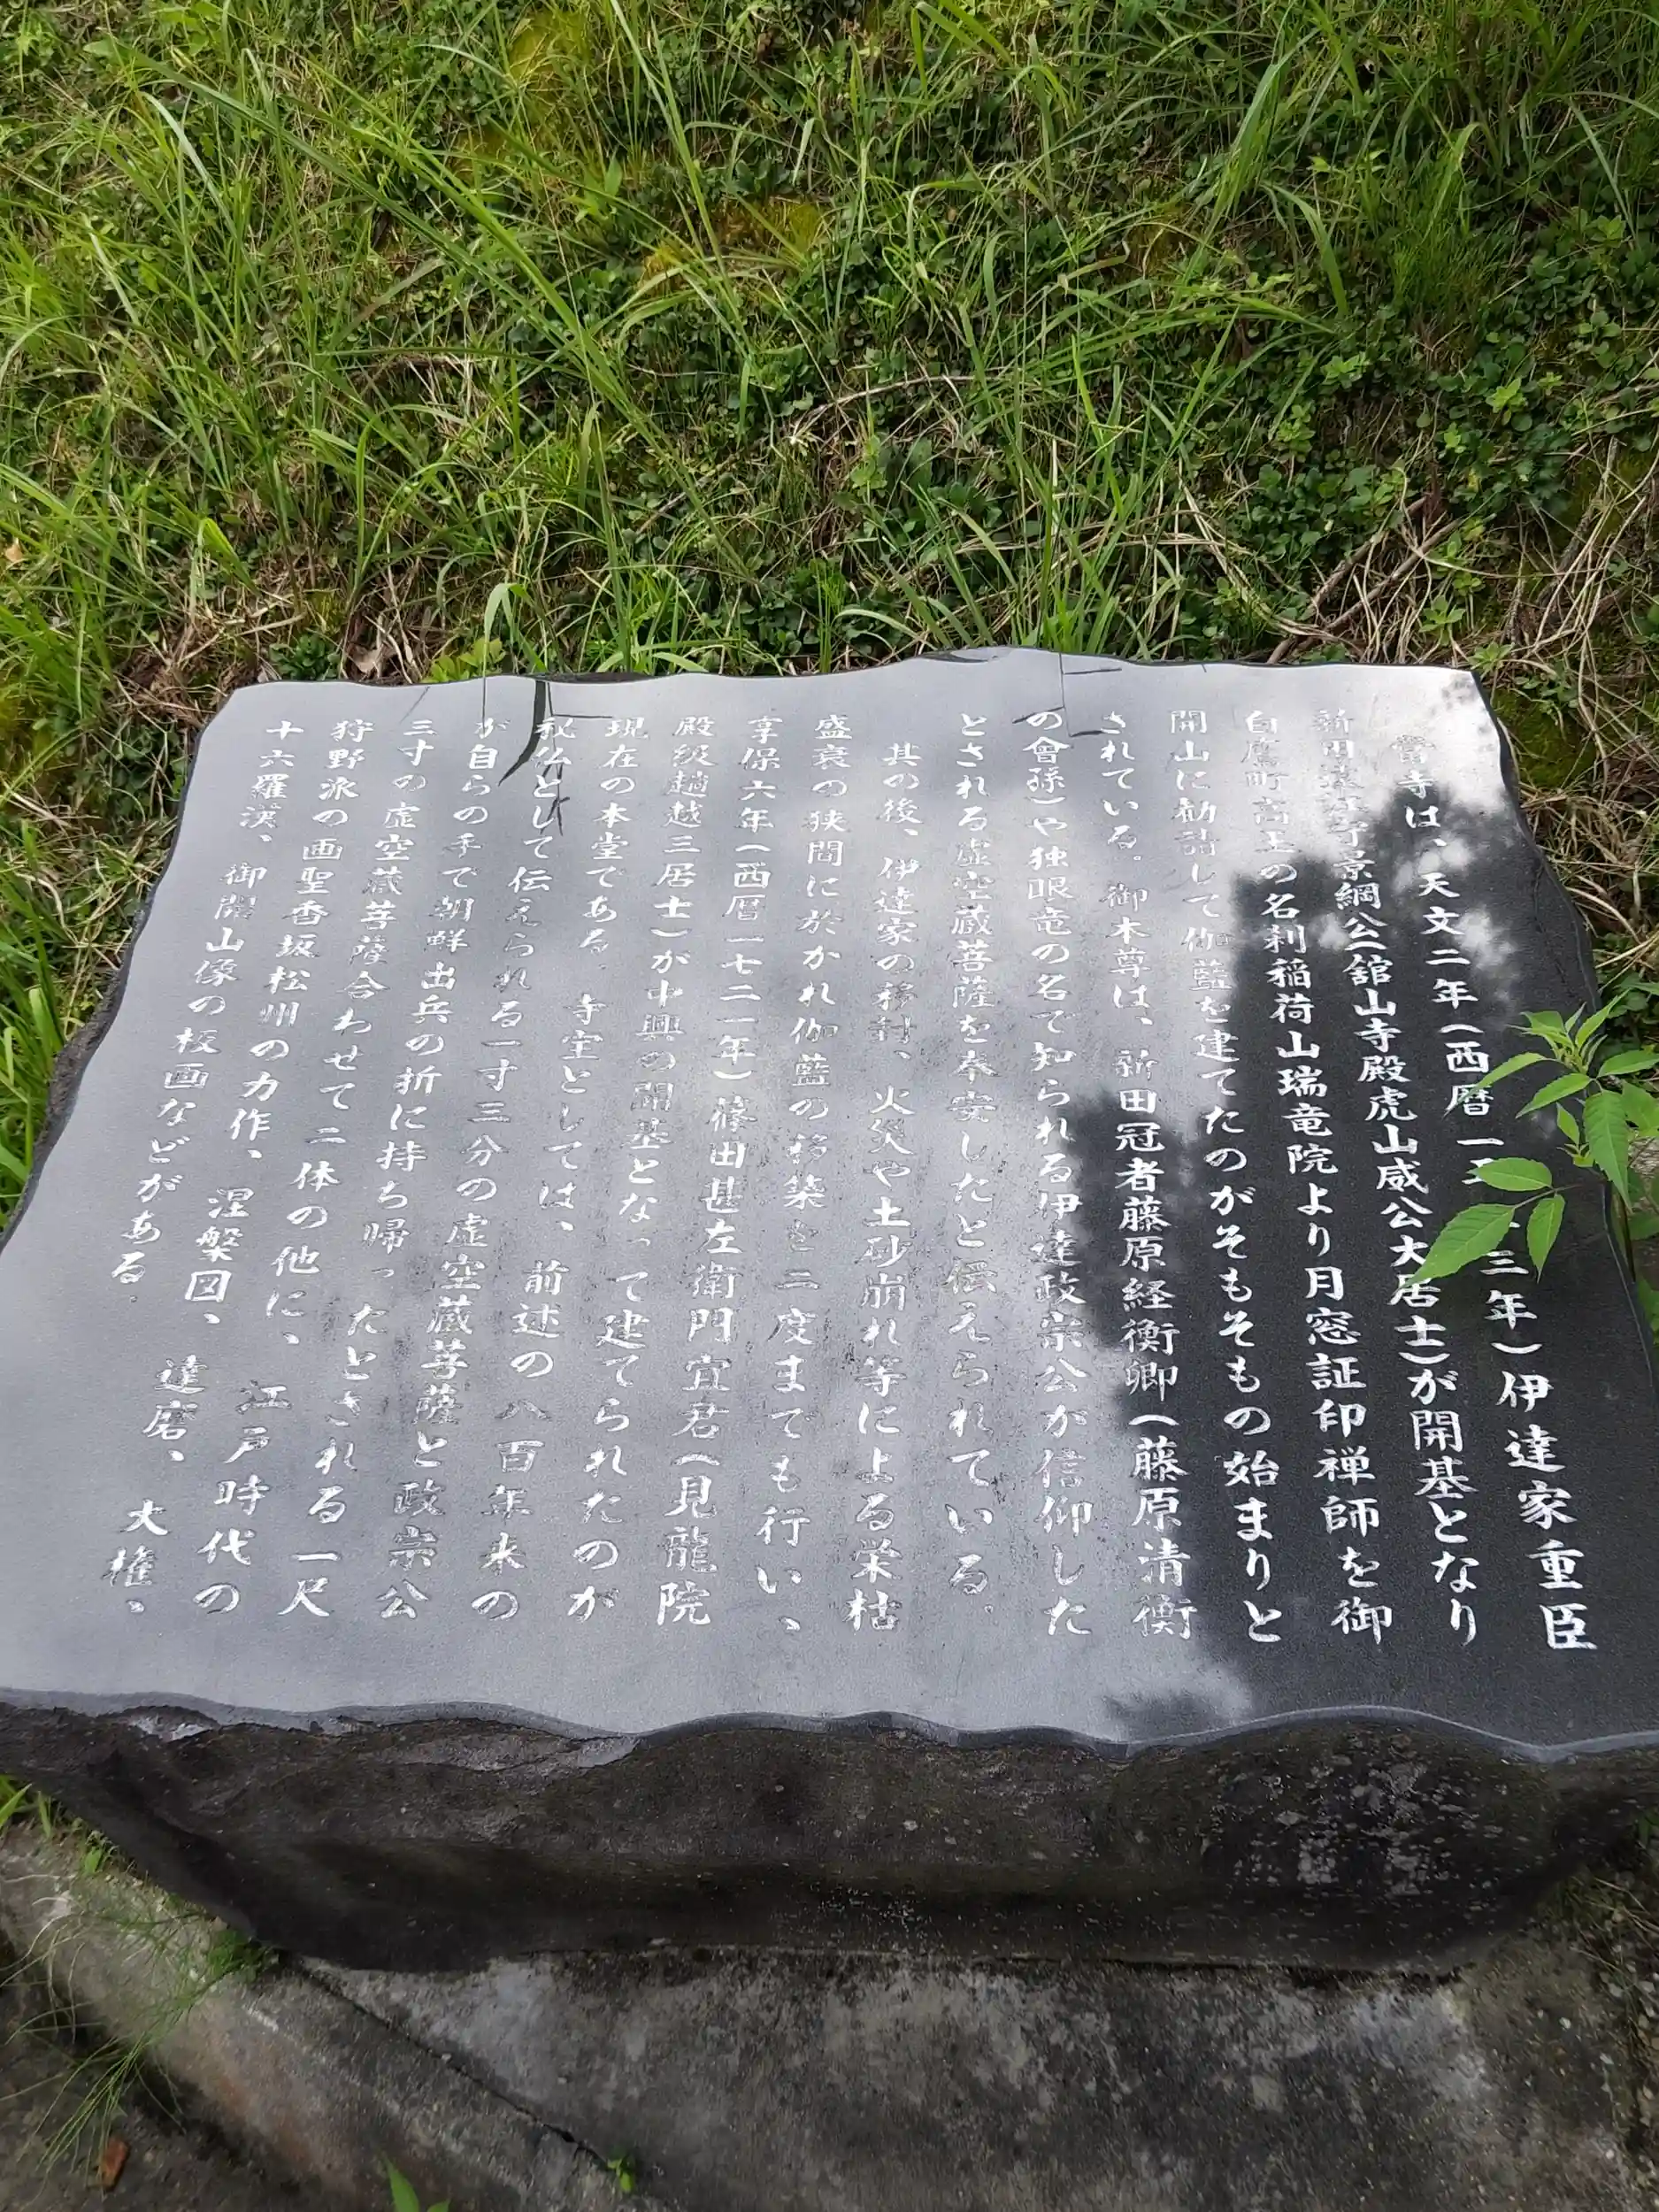 當寺は、天文二年(西暦一五 三年)伊達家重臣
新田遠江守景綱公(舘山寺殿虎山威公大居士)が開基となり
白鷹町高玉の名刹稲荷山瑞竜院より月窓証印禅師を御
開山に勧請して伽藍を建てたのがそもそもの始まりと
されている。御本尊は、新田冠者藤原経衡卿(藤原清衡
の會孫)や独眼竜の名で知られる伊達政宗公が信仰した
とされる虚空蔵菩薩を奉安したと伝えられている。
其の後、伊達家の移封、火災や土砂崩れ等による栄枯
盛衰の狭間に於かれ伽藍の移築を二度までも行い、
享保六年(西暦一七二一年)篠田甚左衛門宜君(見龍院
殿級趟越三居士)が中興の開基となって建てられたのが
現在の本堂である。寺宝としては、前述の八百年来の
秘仏として伝えられる一寸三分の虚空蔵菩薩と政宗公
が自らの手で朝鮮出兵の折に持ち帰ったとされる一尺
三寸の虚空蔵菩薩合わせて二体の他に、江戸時代の
狩野派の画聖香坂松州の力作、涅槃図、達磨、大権、
十六羅漢、御開山像の板画などがある。